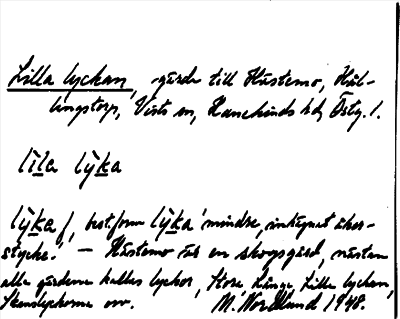 Lilla lyckan, gärde till Hästemo, Häl-
lingstorp, Vists sn, Hanekinds hd, Östg. l.
lìla lỳka
lỳka f., best. form lỳka 'mindre, inhägnat åker-
stycke.' – Hästemo är en skogsgård, nästan
alla gärdena kallas lyckor, Stora, Långa, Lilla lyckan,
Stenslyckorna osv. M. Nordlund 1948.